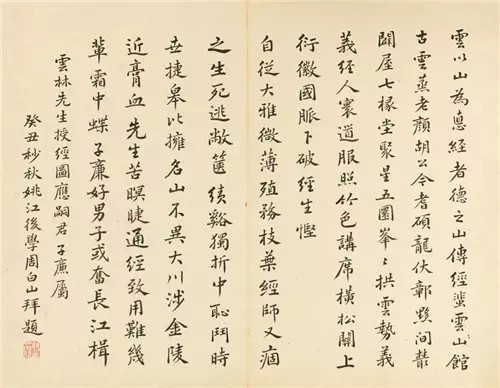 雲以山為息經者德之山傳經蜚雲山館
古雲蒸老顏胡公今耆碩龍伏鄣黟間叢
闢屋七椽堂聚星五圜峯〻拱雲勢義
義經人寰道服照竹色講席橫松關上
衍徽國脈下破經生慳
自從大雅微薄殖務枝葉經師又痼
之生死逃敝篋績谿獨折中恥鬥時
世捷皋比擁名山不異大川涉金陵
近膏血先生苦瞑睫通經致用難幾
輩霜中蝶子廉好男子或奮長江楫
雲林先生授經圖應嗣君子廉屬
癸丑秒秋姚江後學周白山拜題